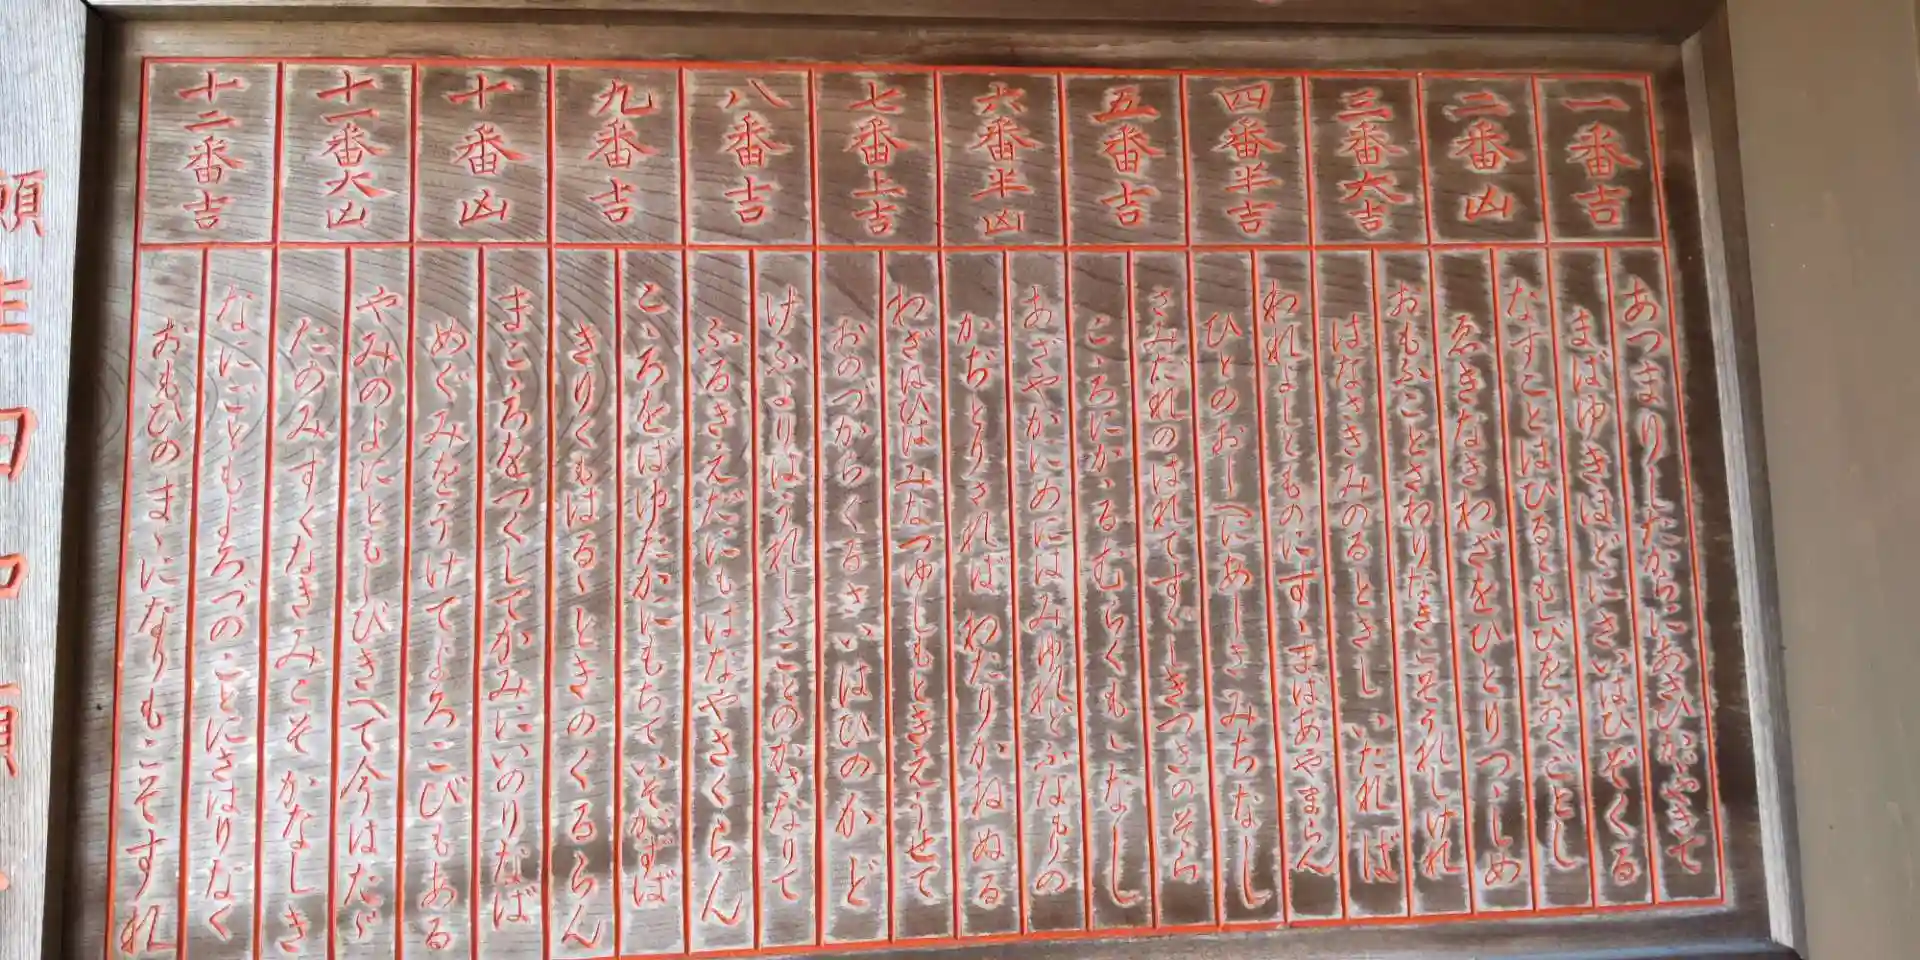 一番吉
あつまりしたからにあさひかゞやきて
まばゆきほどにさいはひぞくる
二番凶
なすことはひるともしびをおくごとし
ゑきなきわざをひとりつゝしめ
三番大吉
おもふことさわりなきこそうれしけれ
はなさきみのるときしいたれば
四番半吉
われよしとものにすゝまばあやまらん
ひとのおしへにあしきみちなし
五番吉
さみだれのはれてすゞしきつきのそら
こゝろにかゝるむらくもゝなし
六番半凶
あざやかにめにはみゆれどふなもりの
かぢとりされば わたりかねぬる
七番上吉
わざはひはみなつゆしもときえうせて
おのづからくるさいはひのかど
八番吉
けふよりはうれしきことのかさなりて
ふるきえだにもはなやさくらん
九番吉
こゝろをばゆたかにもちていそがずば
きりくもはるゝときのくるらん
十番凶
まこゝろをつくしてかみにいのりなば
めぐみをうけてよろこびもある
十一番大凶
やみのよにともしびきへて今はたゞ
たのみすくなきみこそかなしき
十二番吉
なにごともよろづのことにさはりなく
おもひのまゝになりもこそすれ